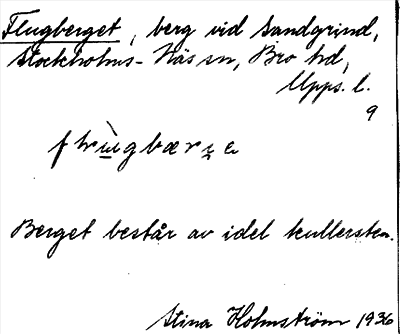 Flugberget, berg vid Sandgrind,
Stockholms-Näs sn, Bro hd,
Upps. l.
9
Berget består av idel kullersten.
Stina Holmström 1936